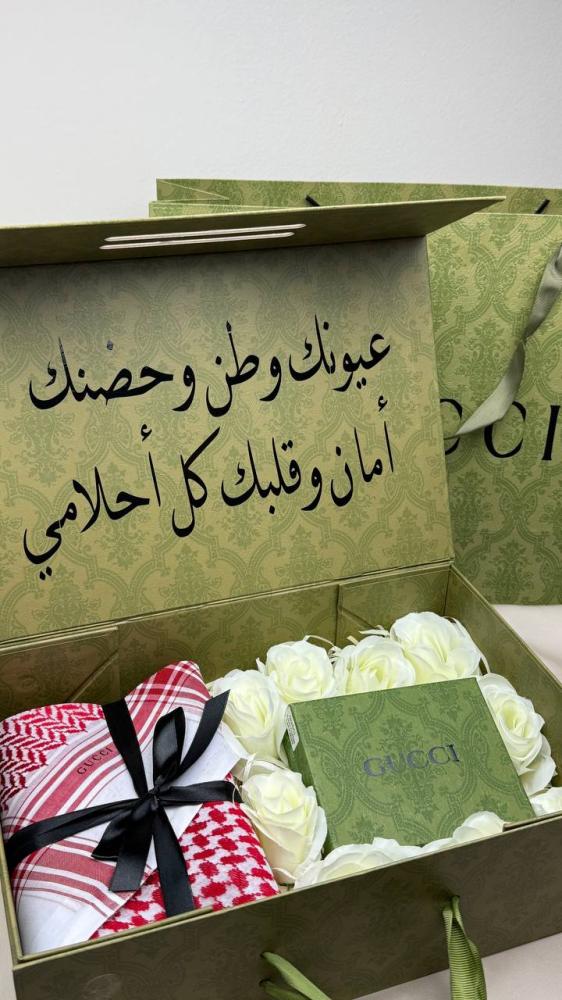 عيونك وطن وحضنك
أمان وقلبك كل أحلامي
CCI
GUCCI
GUCCI